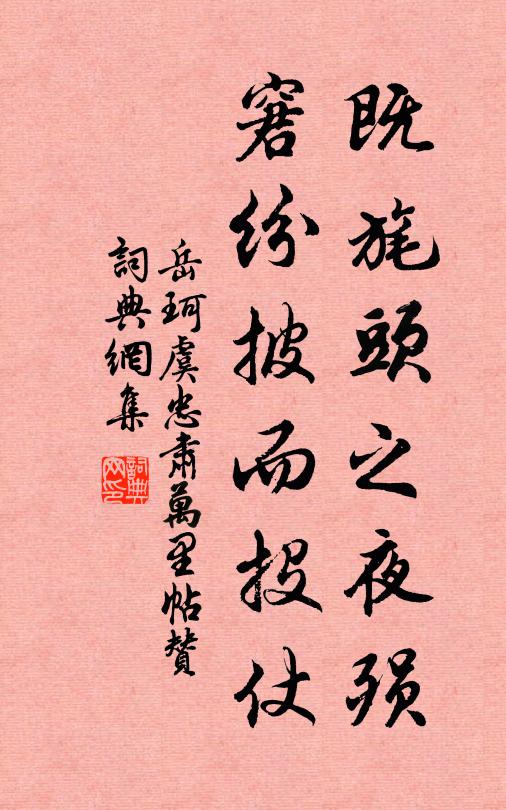 既旄頭之夜殞
窘紛披而投仗
岳珂虞忠肅萬里帖贊
詞典網集
詞典網印